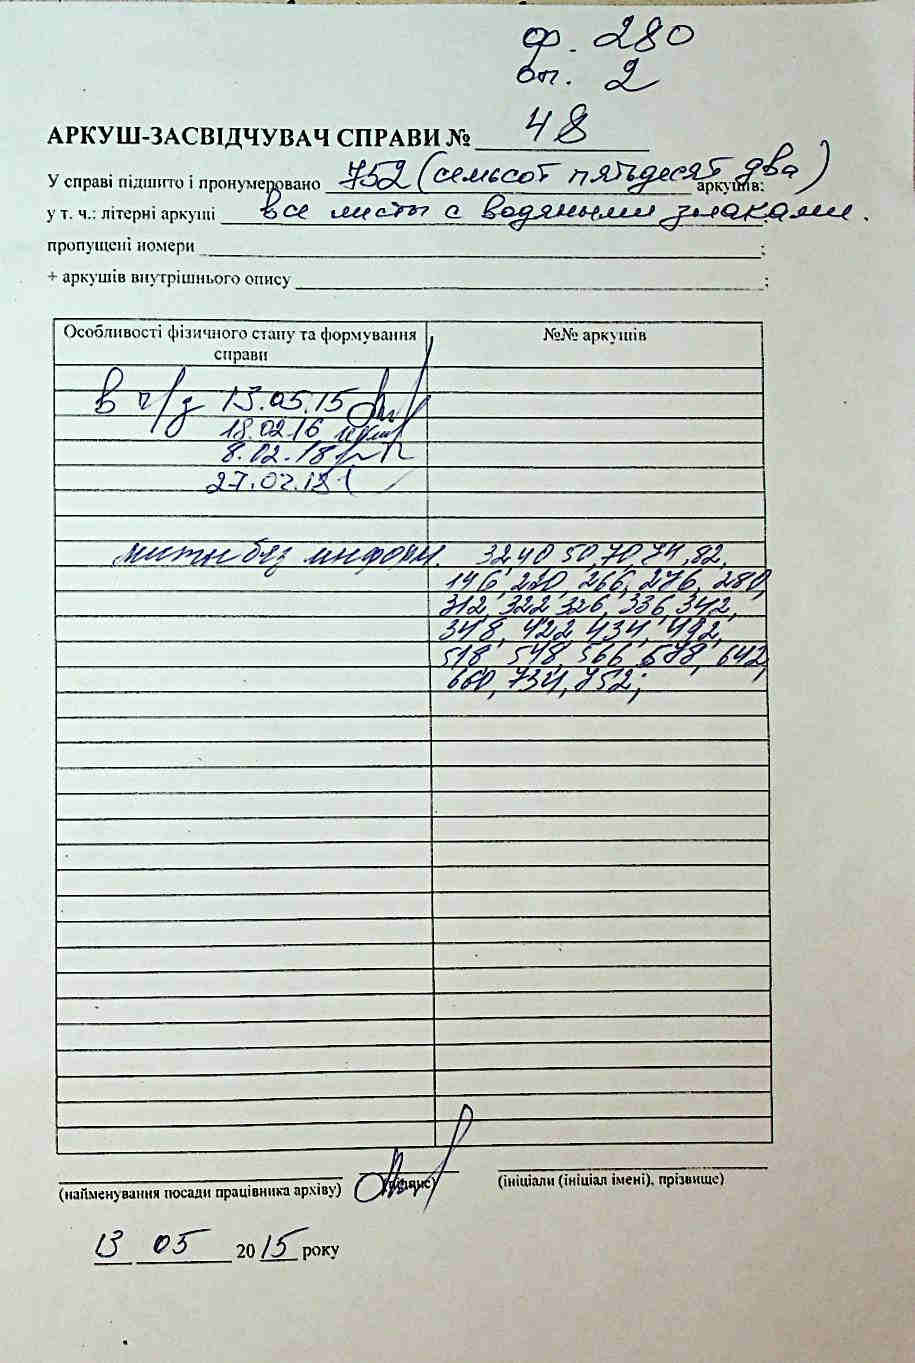 ф. 280
оп. 2
АРКУШ-ЗАСВІДЧУВАЧ СПРАВИ № 48
У справі підшито і пронумеровано 752 (семьсот пятьдесят два) аркушів:
у т. ч.: літерні аркуші все листы с водяными знаками.
пропущені номери ;
+ аркушів внутрішнього опису ;
Особливості фізичного стану та формування справи №№ аркушів
в ч/з 13.05.15
18.02.16
8.02.18
27.02.18
листы без информ. 32, 40, 50, 70, 74, 82,
146, 220, 266, 276, 280,
312, 322, 326, 336, 342,
348, 422, 434, 492,
518, 548, 566, 678, 642,
660, 734, 752;
(найменування посади працівника архіву) (підпис) (ініціали (ініціал імені), прізвище)
13 05 2015 року